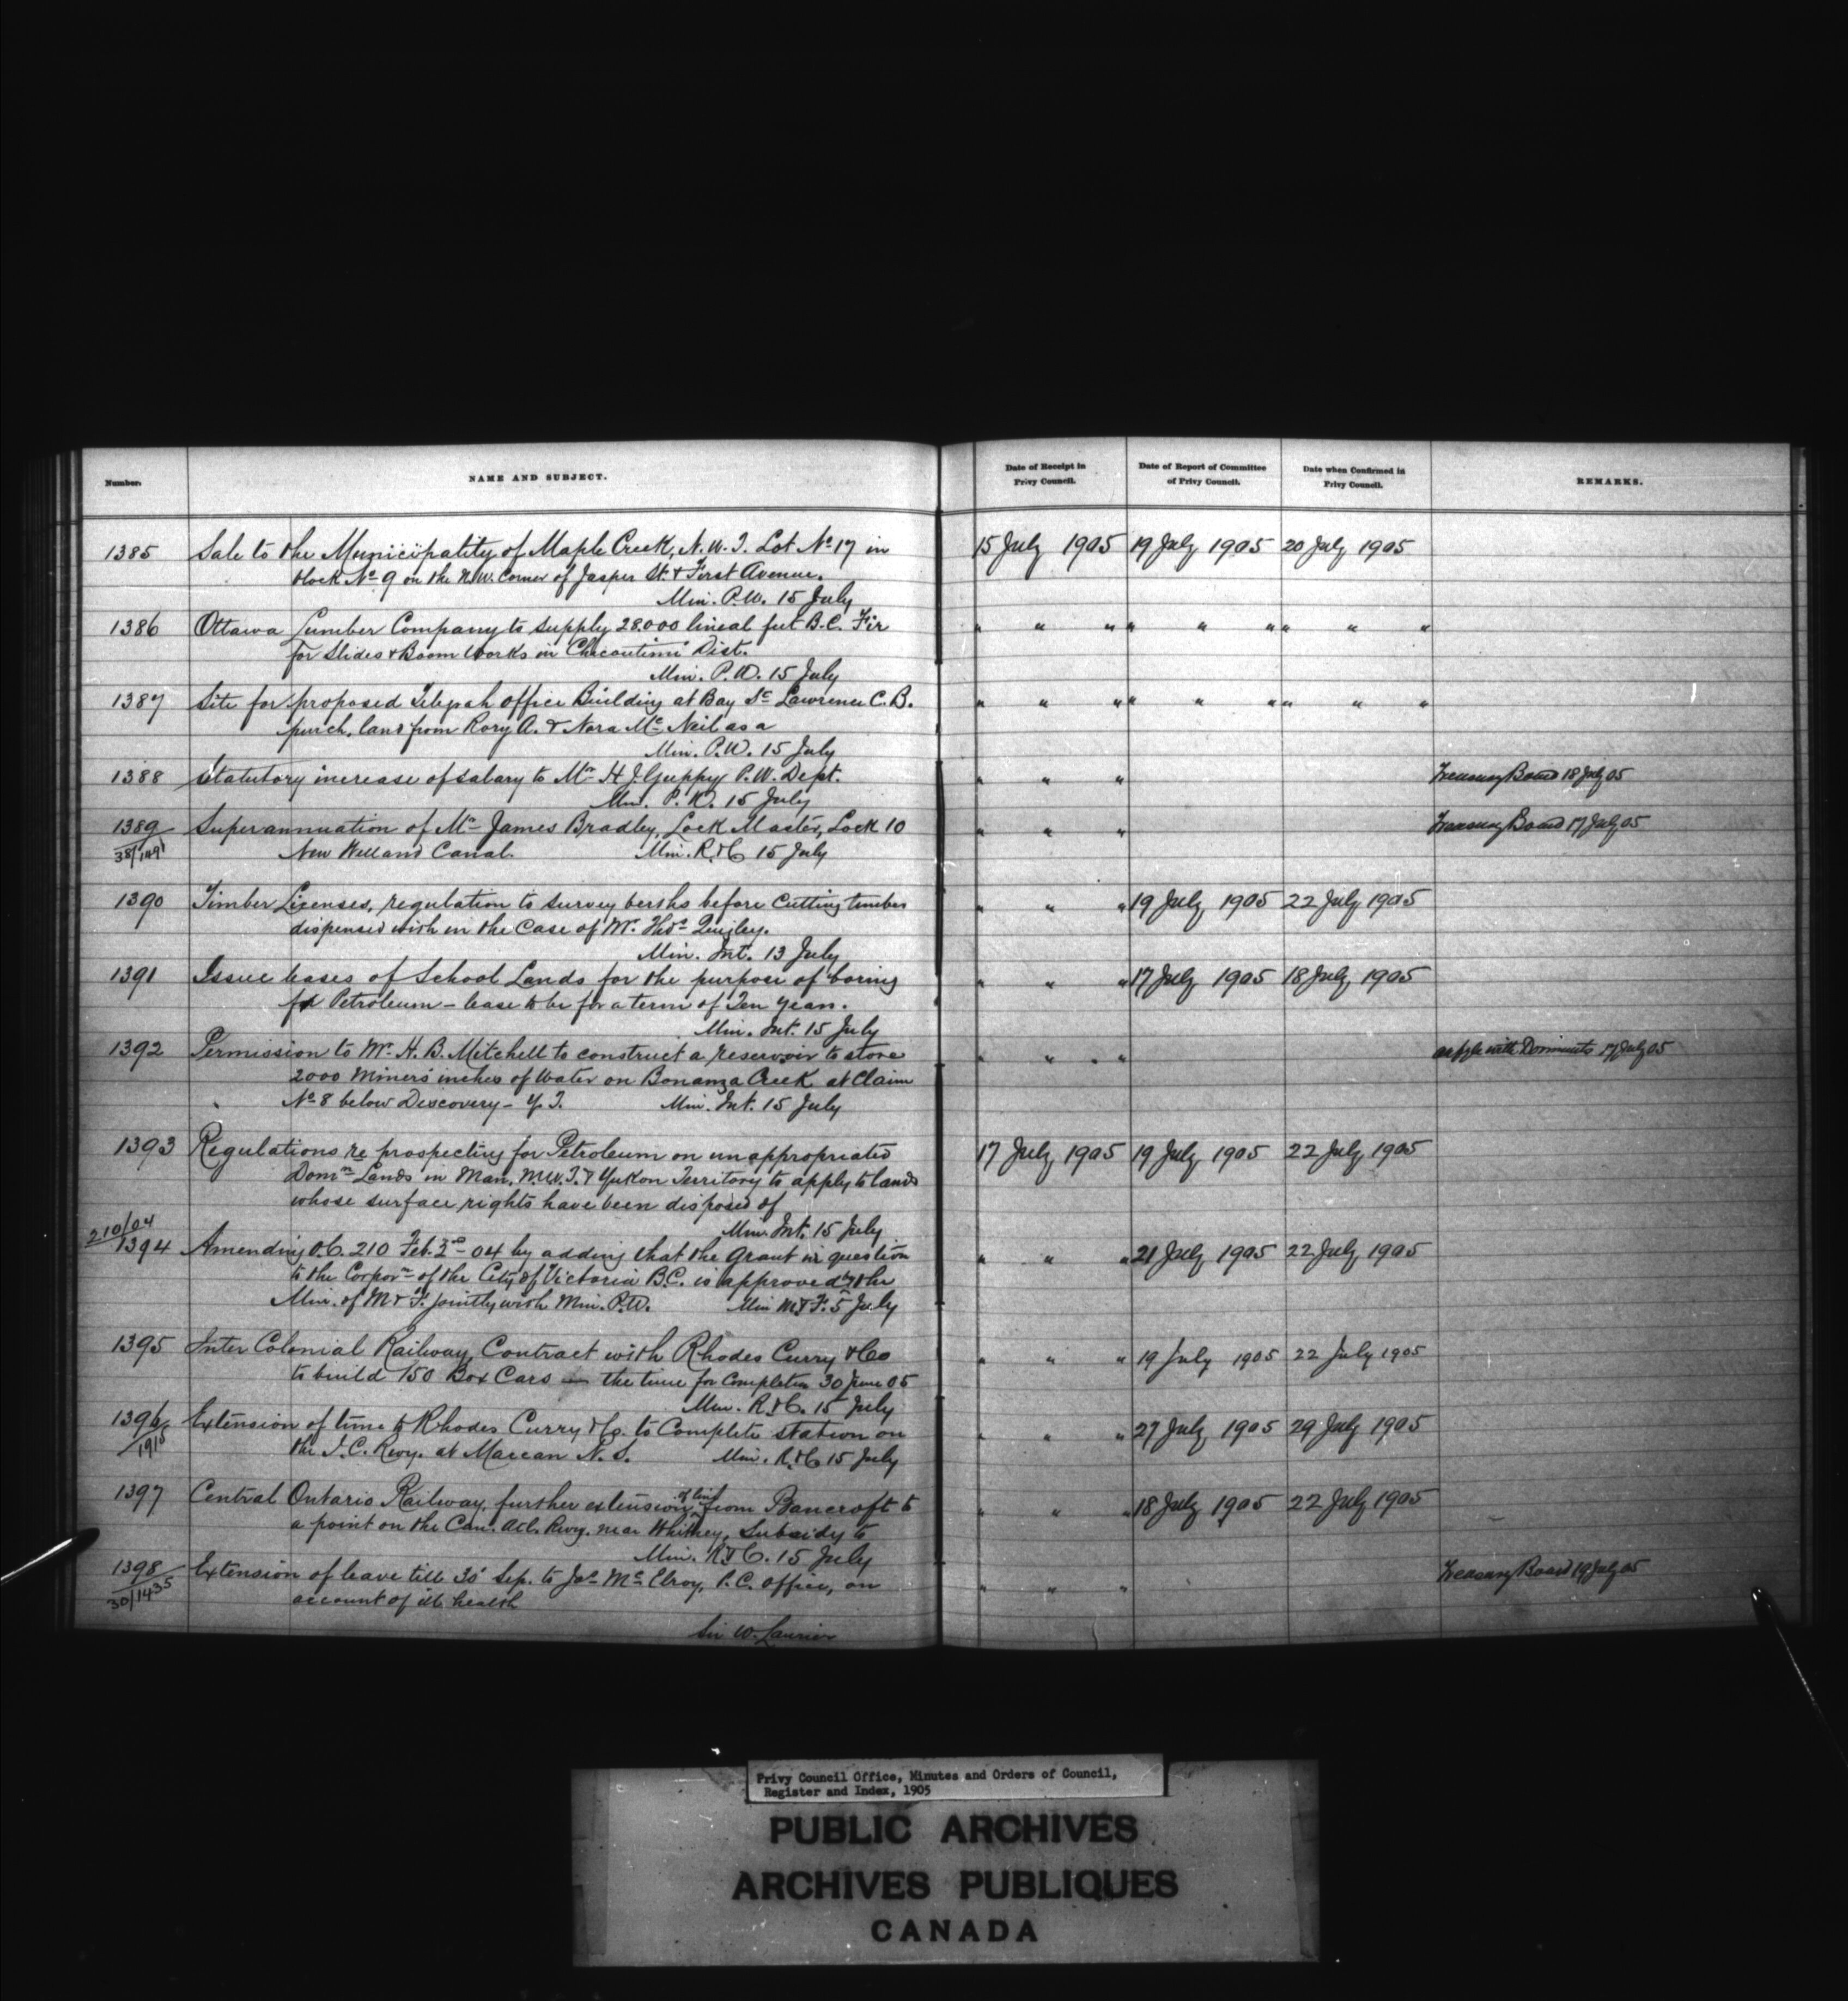 Number.
NAME AND SUBJECT.
Date of Receipt in
Privy Council.
Date of Report of Committee
of Privy Council.
Date when Confirmed in
Privy Council.
REMARKS.
1385 Sale to the Municipality of Maple Creek, N.W.T. Lot No 17 in 15 July 1905 19 July 1905 20 July 1905
block No 9 on the N.W. corner of Jasper St. & First Avenue.
Min. P.W. 15 July
1386 Ottawa Lumber Company to supply 28.000 lineal feet B.C. Fir " " " " " " " " "
for Slides & Boom Works in Chicoutimi Dist.
Min. P.W. 15 July
1387 Site for proposed Telegrah office Building at Bay St Lawrence C.B. " " " " " " " " "
purch. land from Rory A. & Nora Mc Neil as a
Min. P.W. 15 July
1388 Statutory increase of salary to Mr H.J. Guppy P.W. Dept. " " " Treasury Board 18 July 05
Min. P.W. 15 July
1389 Superannuation of Mr James Bradley, Lock Master, Lock 10 " " " Treasury Board 17 July 05
38/1491 New Welland Canal. Min. R.&C 15 July
1390 Timber Licenses, regulation to survey berths before cutting timber " " " 19 July 1905 22 July 1905
dispensed with in the case of Mr. Thos Quigley.
Min. Int. 13 July
1391 Issue leases of School Lands for the purpose of boring " " " 17 July 1905 18 July 1905
for Petroleum - lease to be for a term of Ten years.
Min. Int. 15 July
1392 Permission to Mr. H.B. Mitchell to construct a reservoir to store " " " 17 July 05
2000 Miners' inches of Water on Bonanza Creek at Claim
No 8 below Discovery - Y.T. Min. Int. 15 July
1393 Regulations re prospecting for Petroleum on unappropriated 17 July 1905 19 July 1905 22 July 1905
Domn Lands in Man. N.W.T. & Yukon Territory to apply to lands
whose surface rights have been disposed of
Min. Int. 15 July
210/04
1394 Amending O.C. 210 Feb. 2nd - 04 by adding that the grant in question " " " 21 July 1905 22 July 1905
to the Corporn of the City of Victoria B.C. is approved by the
Min. of M & F. jointly with Min. P.W. Min M&F. 5 July
1395 Inter Colonial Railway, Contract with Rhodes Curry & Co " " " 19 July 1905 22 July 1905
to build 150 Box Cars - the time for completion 30 June 05
Min. R.&C. 15 July
1396 Extension of time to Rhodes Curry & Co. to Complete station on " " " 27 July 1905 29 July 1905
/1915 the I.C. Rwy. at Maccan N.S. Min. R.&C 15 July
1397 Central Ontario Railway, further extension of line from Bancroft to " " " 18 July 1905 22 July 1905
a point on the Can. Atl. Rwy. near Whitney, Subsidy to
Min. R&C. 15 July
1398 Extension of leave till 30 Sep. to Jas Mc Elroy, P.C. Office, on " " " Treasury Board 19 July 05
30/1435 account of ill health
Sir W. Laurier
Privy Council Office, Minutes and Orders of Council,
Register and Index, 1905
PUBLIC ARCHIVES
ARCHIVES PUBLIQUES
CANADA